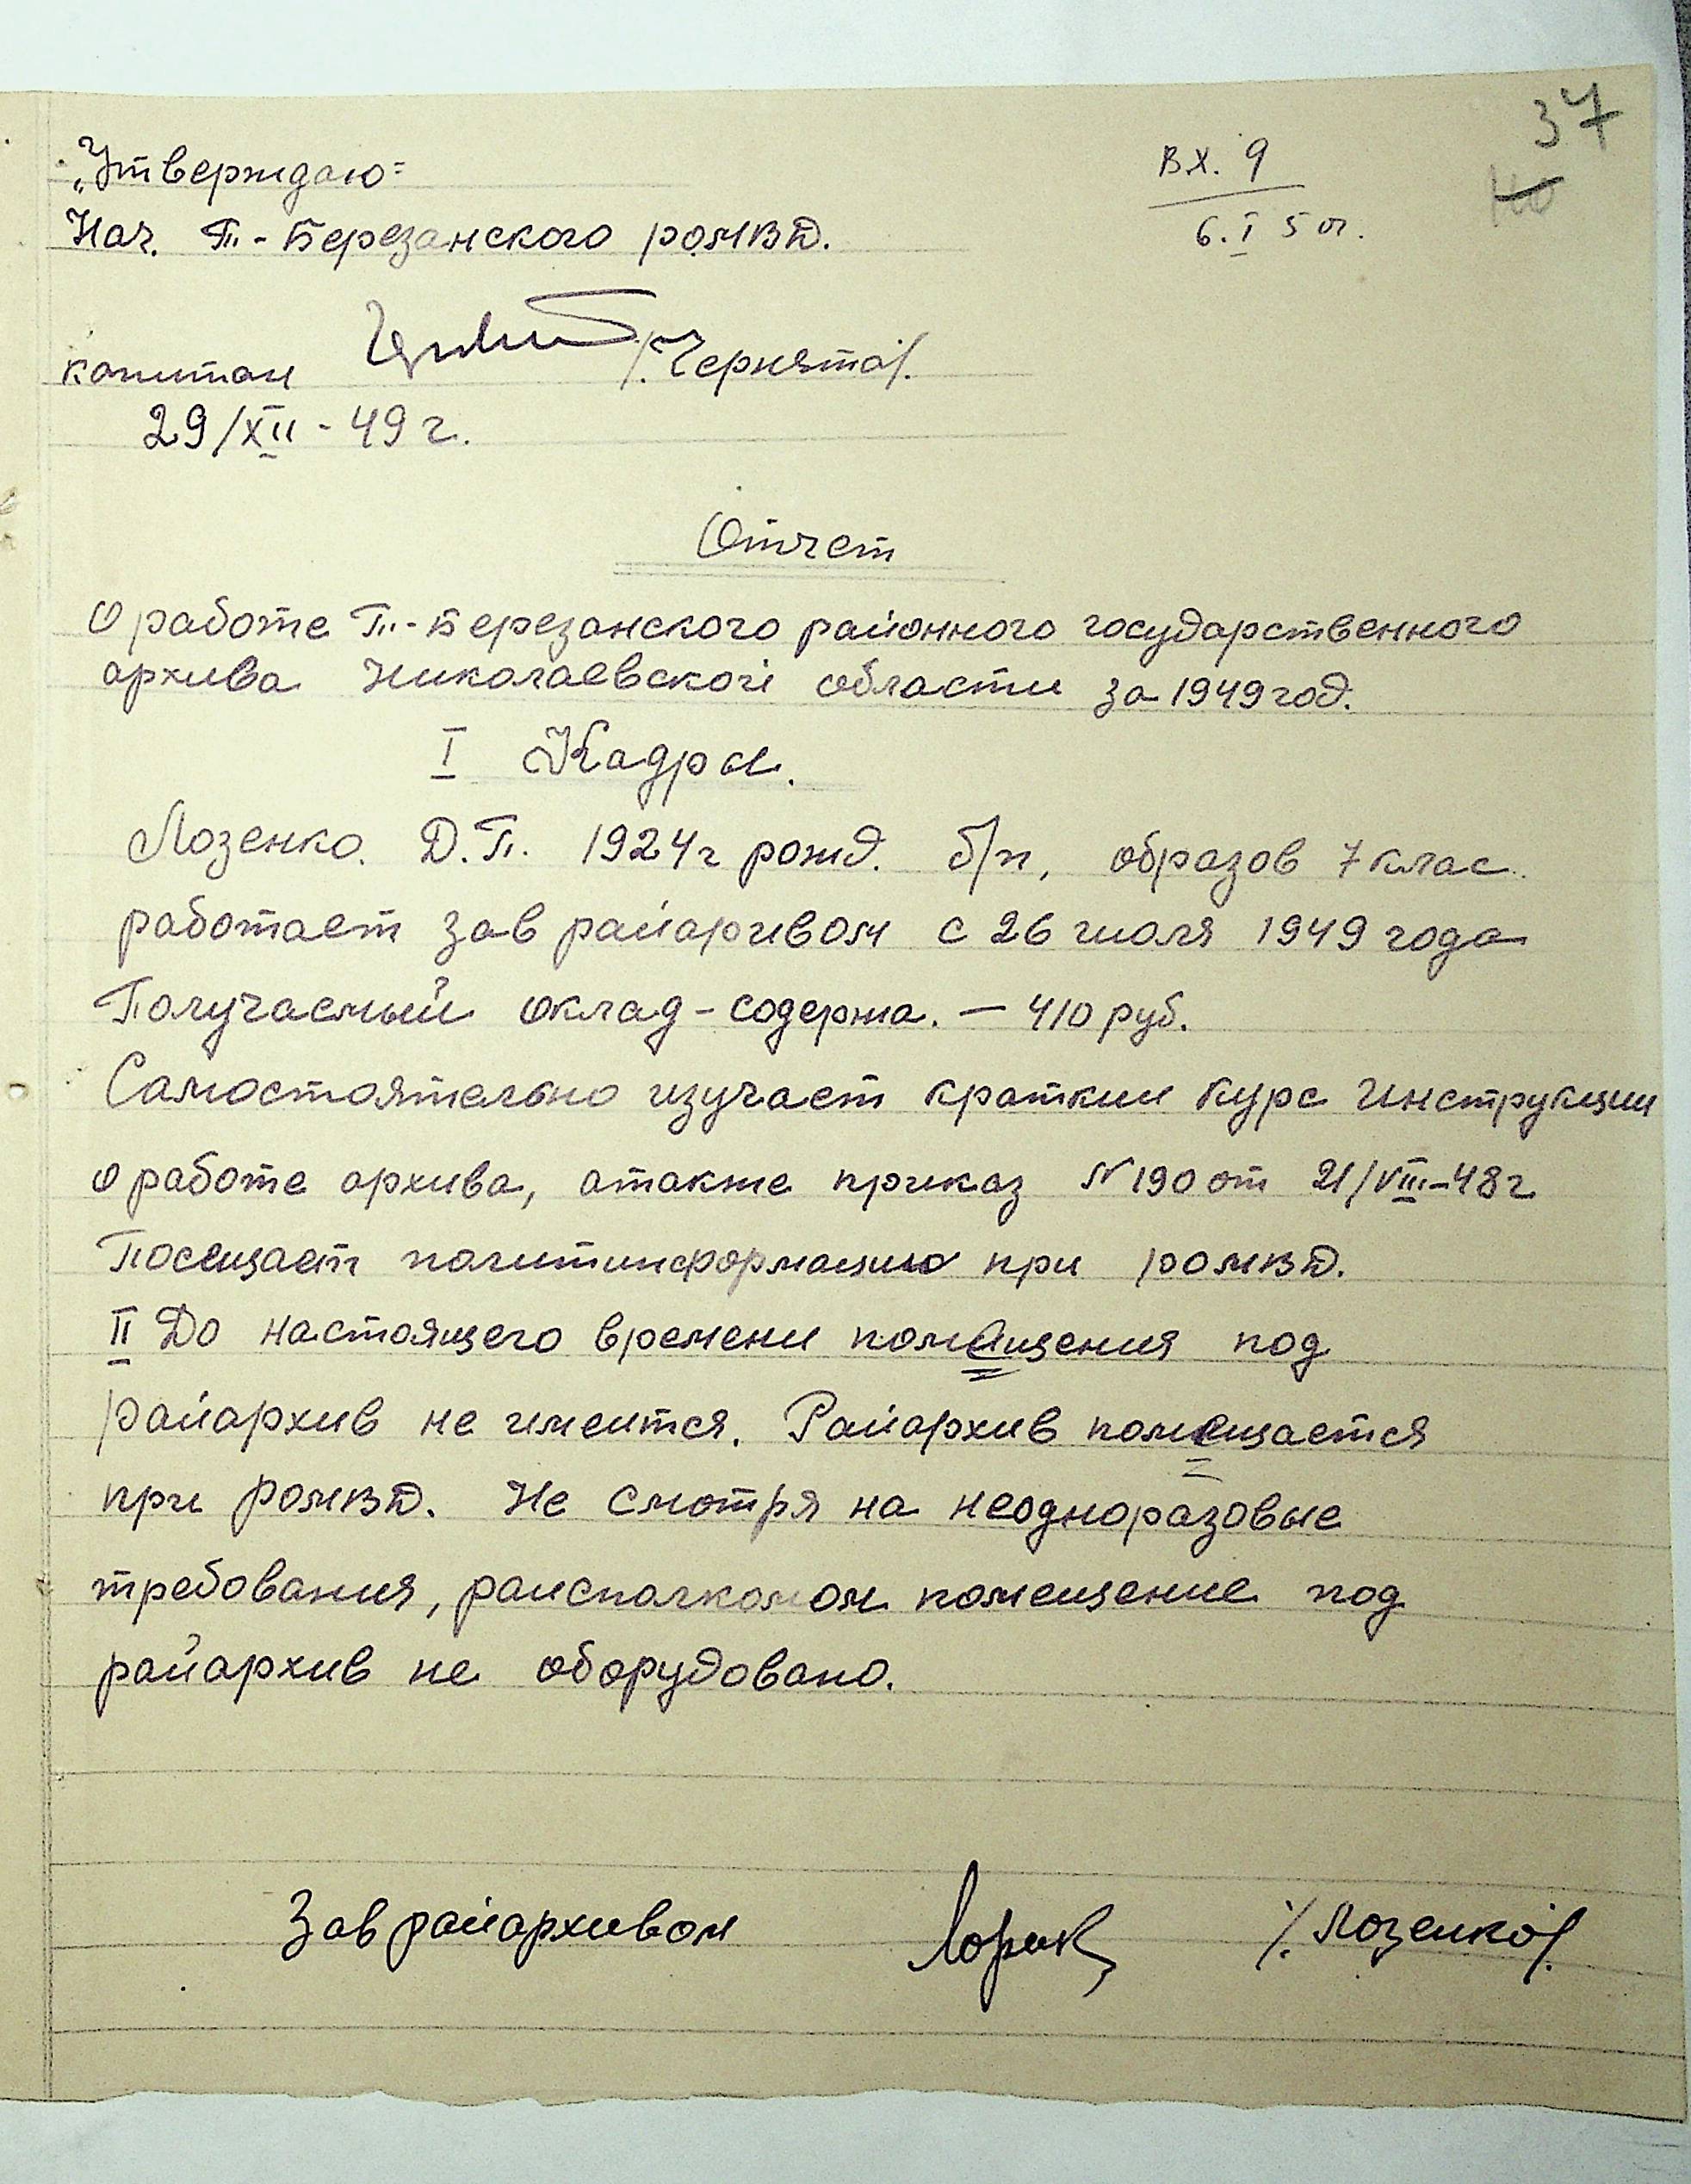 37
Вх. 9
6.I 50г.
„Утверждаю"
Нач. Т.-Березанского РОМВД.
капитан /Чернята/.
29/XII - 49 г.
Отчет
о работе Т.-Березанского районного государственного
архива Николаевской области за 1949 год.
I Кадры.
Лозенко. Д.П. 1924 г рожд. б/п, образов 7 клас.
работает зав райархивом с 26 июля 1949 года
Получаемый оклад-содержа. — 410 руб.
Самостоятельно изучает краткий курс Инструкции
о работе архива, атакже приказ №190 от 21/VIII-48 г
Посещает политинформацию при РОМВД.
II До настоящего времени помещения под
райархив не имеится. Райархив помещается
при РОМВД. Не смотря на неодноразовые
требования, райсполкомом помещение под
райархив не оборудовано.
Зав райархивом /Лозенко/.